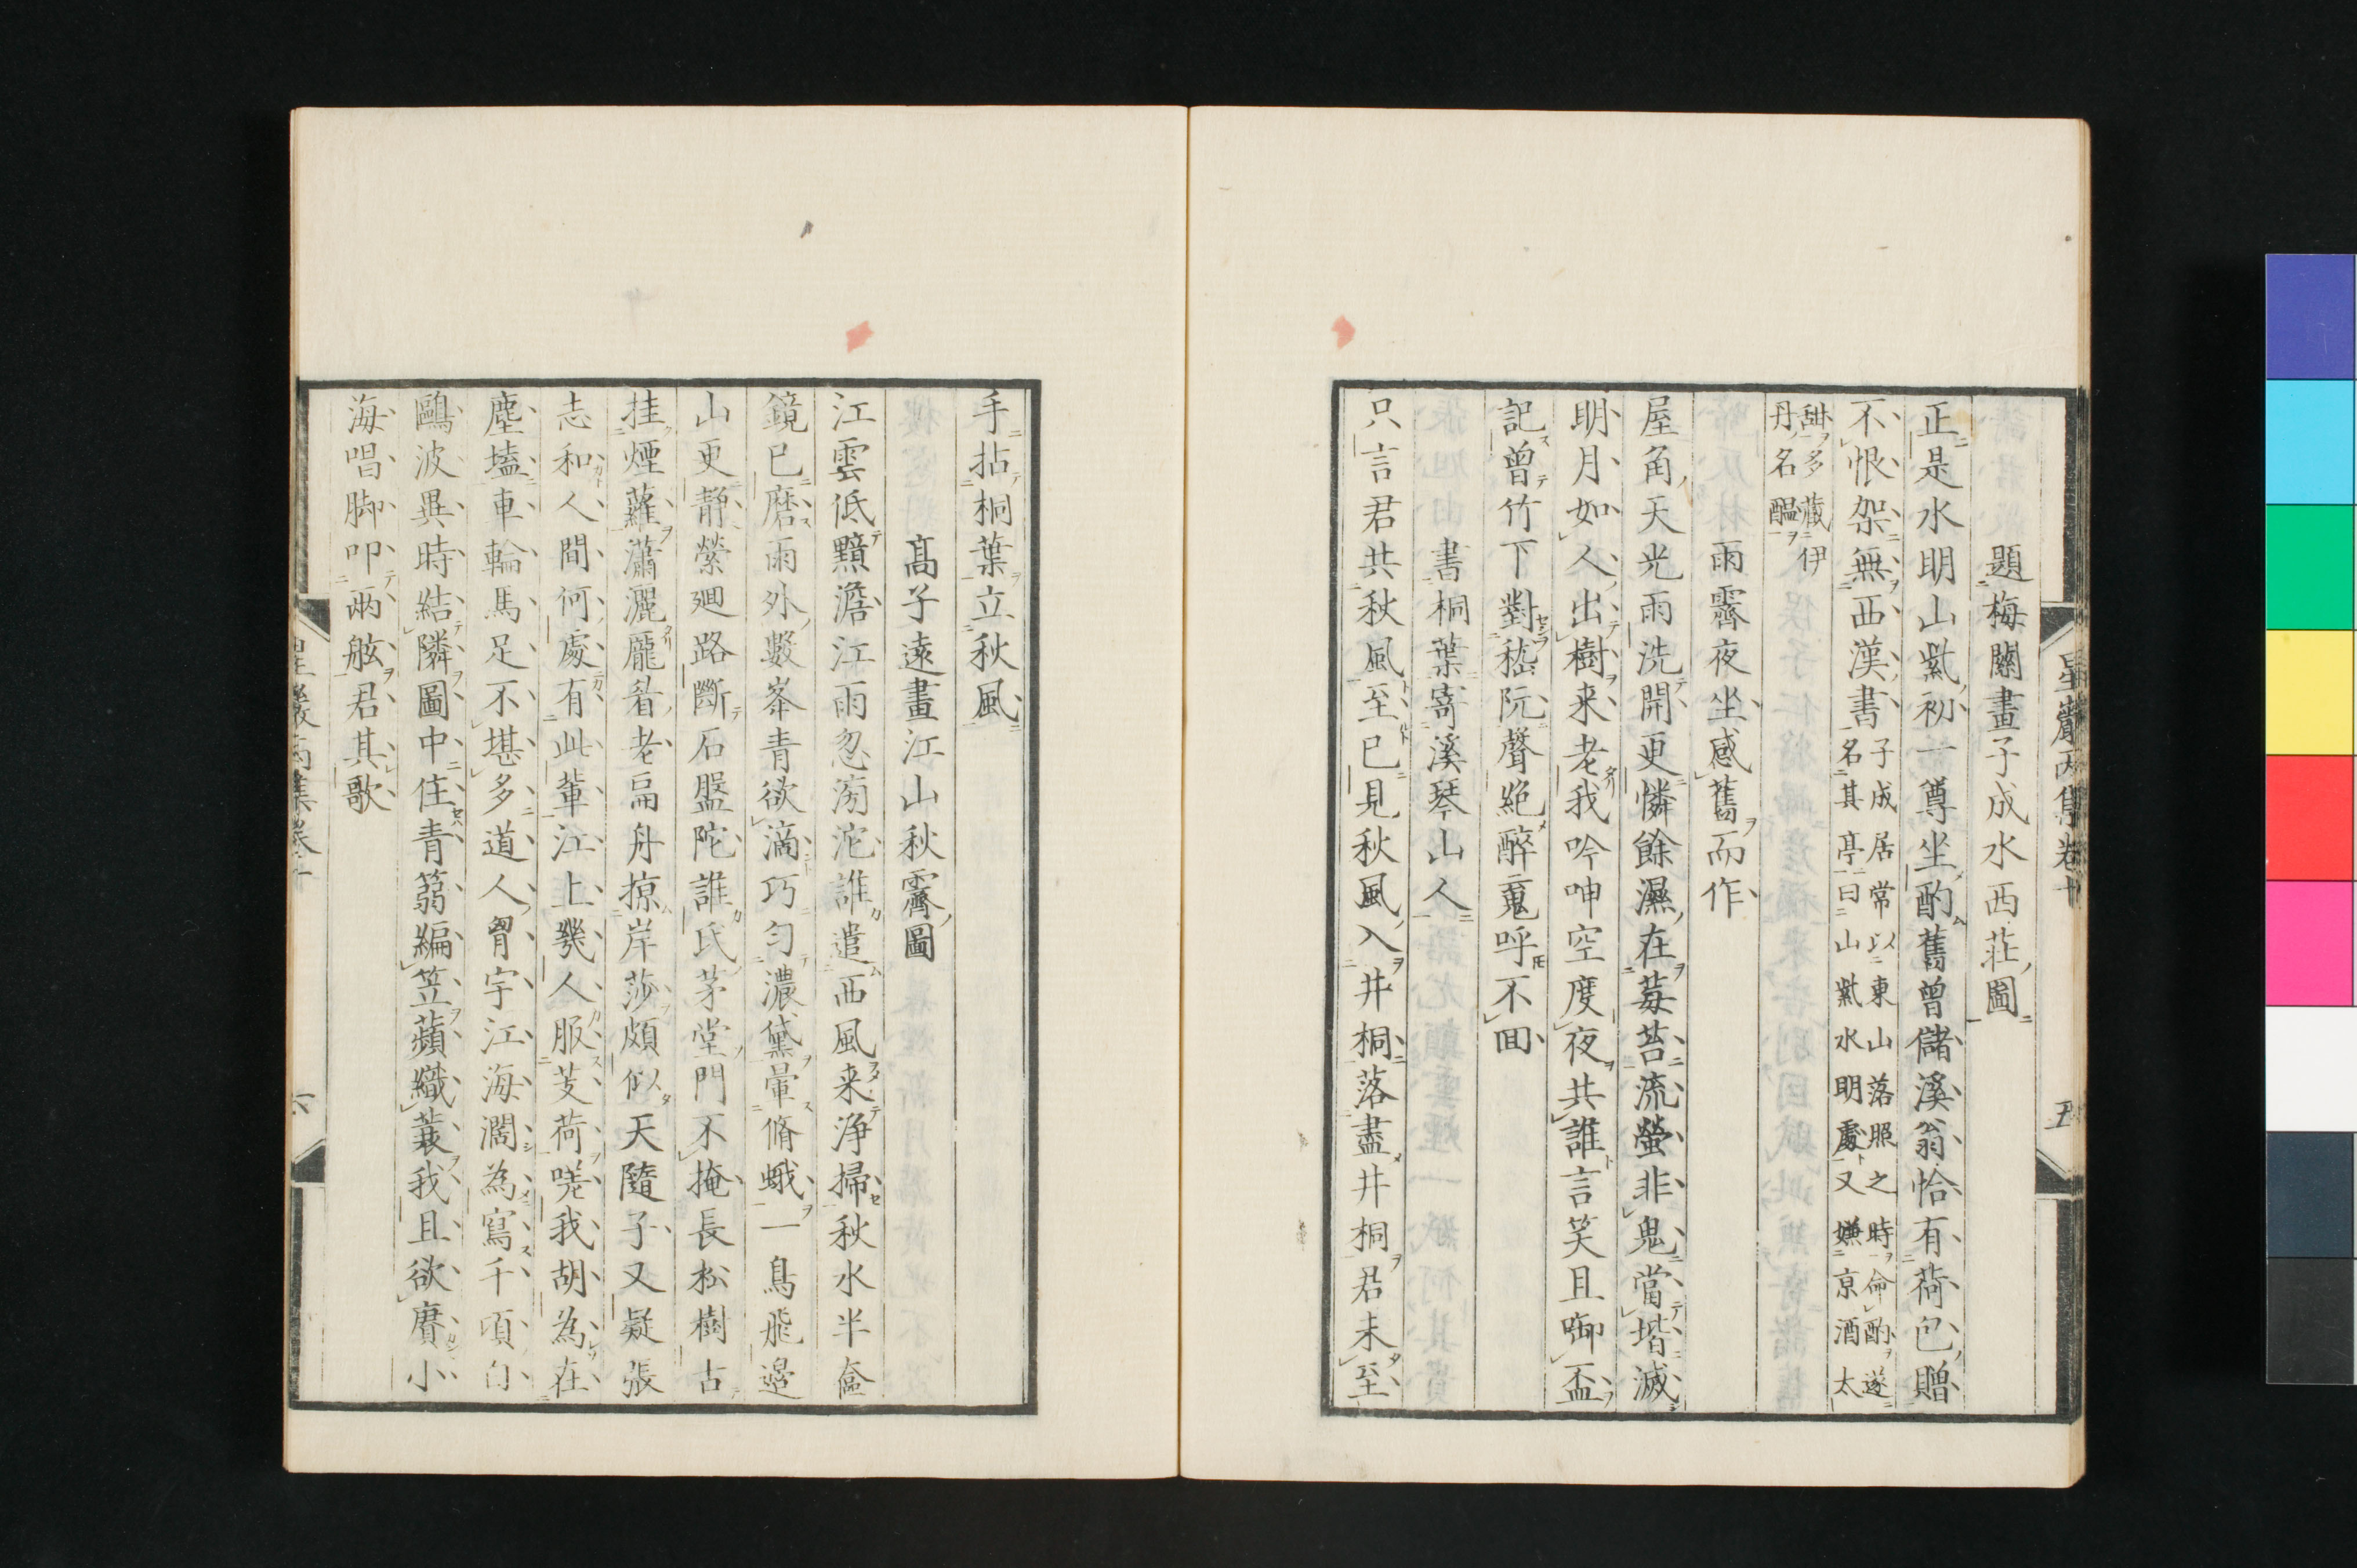 題梅關畫子成水西莊圖
正是水明山紫初一尊坐酌舊曾儲溪翁恰有荷包贈
不恨架無西漢書子成居常以東山落照之時命酌遂
名其亭曰山紫水明處又嫌京酒太
甜多藏伊
丹名醞
雨霽夜坐感舊而作
屋角天光雨洗開更憐餘濕在莓苔流螢非鬼當堦滅
明月如人出樹来老我吟呻空度夜共誰言笑且啣盃
記曾竹下對嵇阮聲絶醉䰟呼不回
書桐葉寄溪琴山人
只言君共秋風至已見秋風入井桐落盡井桐君未至
星巖丙集卷十
五
手拈桐葉立秋風
髙子遠畫江山秋霽圖
江雲低黯澹江雨忽滂沱誰遣西風来浄掃秋水半奩
鏡已磨雨外數峯青欲滴巧勻濃黛暈脩蛾一鳥飛邉
山更靜縈廻路斷石盤陀誰氏茅堂門不掩長松樹古
挂煙蘿瀟灑龎眉老扁舟掠岸莎頗似天隨子又疑張
志和人間何處有此輩江上幾人服芰荷嗟我胡為在
塵壒車輪馬足不堪多道人胷宇江海濶為寫千頃白
鷗波異時結隣圖中住青篛編笠蘋織蓑我且欲賡小
海唱脚叩兩舷君其歌
星巖丙集卷十
六